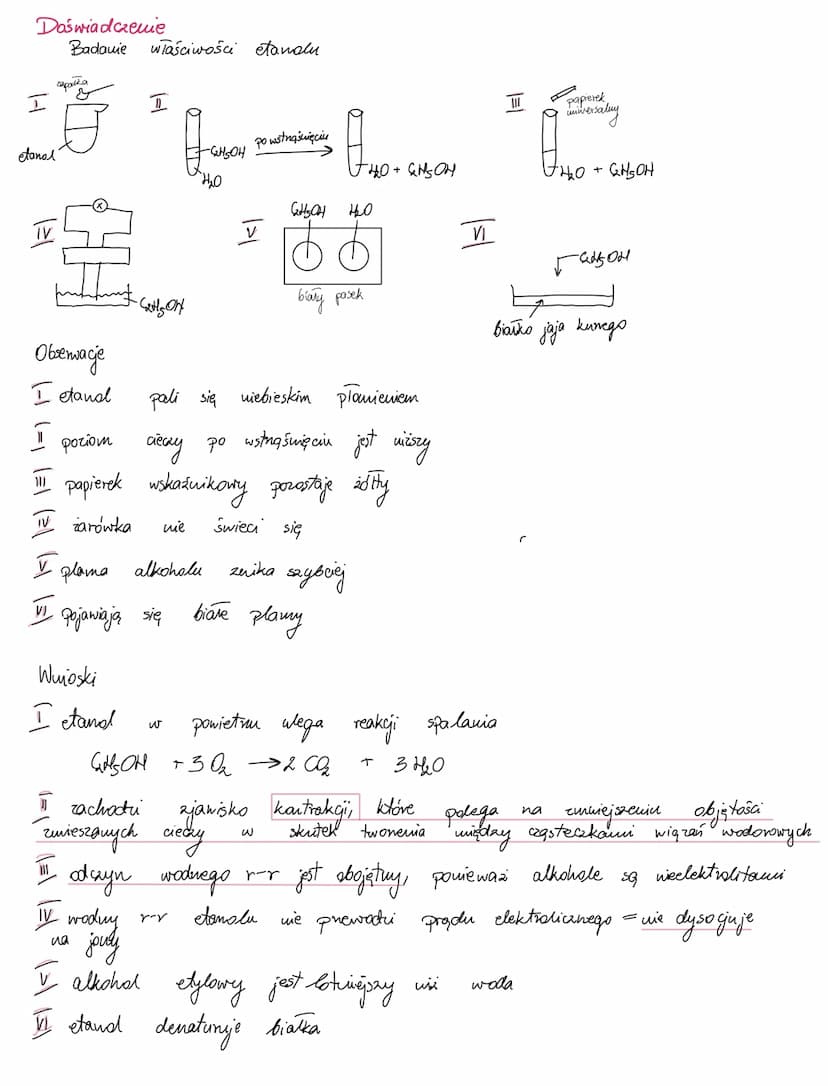 Doświadczenie
Badanie właściwości etanolu
I
zapałka
etanol
II
C₂H₅OH
H₂O
po wstrząśnięciu
H₂O + C₂H₅OH
III
papierek
uniwersalny
H₂O + C₂H₅OH
IV
C₂H₅OH
V
C₂H₅OH H₂O
biały pasek
VI
C₂H₅OH
białko jaja kurzego
Obserwacje
I etanol pali się niebieskim płomieniem
II poziom cieczy po wstrząśnięciu jest niższy
III papierek wskaźnikowy pozostaje żółty
IV żarówka nie świeci się
V plama alkoholu znika szybciej
VI pojawiają się białe plamy
Wnioski
I etanol w powietrzu ulega reakcji spalania
C₂H₅OH + 3 O₂ → 2 CO₂ + 3 H₂O
II zachodzi zjawisko kontrakcji, które polega na zmniejszeniu objętości
zmieszanych cieczy w skutek tworzenia między cząsteczkami wiązań wodorowych
III odczyn wodnego r-r jest obojętny, ponieważ alkohole są nieelektrolitami
IV wodny r-r etanolu nie przewodzi prądu elektrolicznego = nie dysocjuje
na jony
V alkohol etylowy jest lotniejszy niż woda
VI etanol denaturuje białka